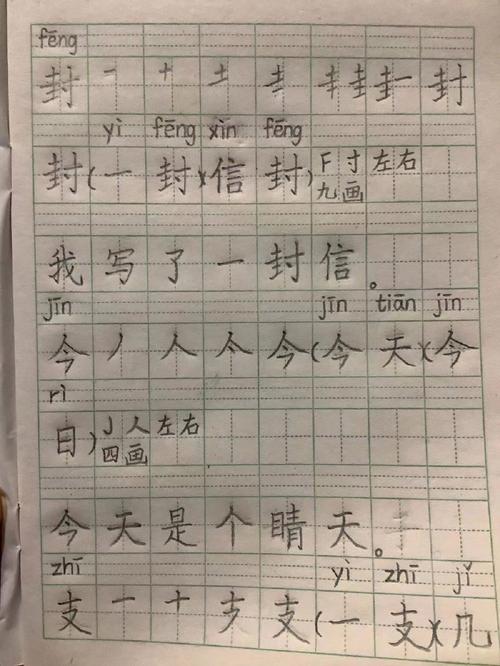 fēng
封 一 十 土 丰 圭 封
yì fēng xìn fēng
封(一封)(信封)F 寸 左右
九画
我写了一封信。
jīn jīn tiān jīn
今 丿 人 亽 今(今天)(今
rì
日)J 人 左右
四画
今天是个睛天。
zhī yì zhī jǐ
支 一 十 支(一支)(几